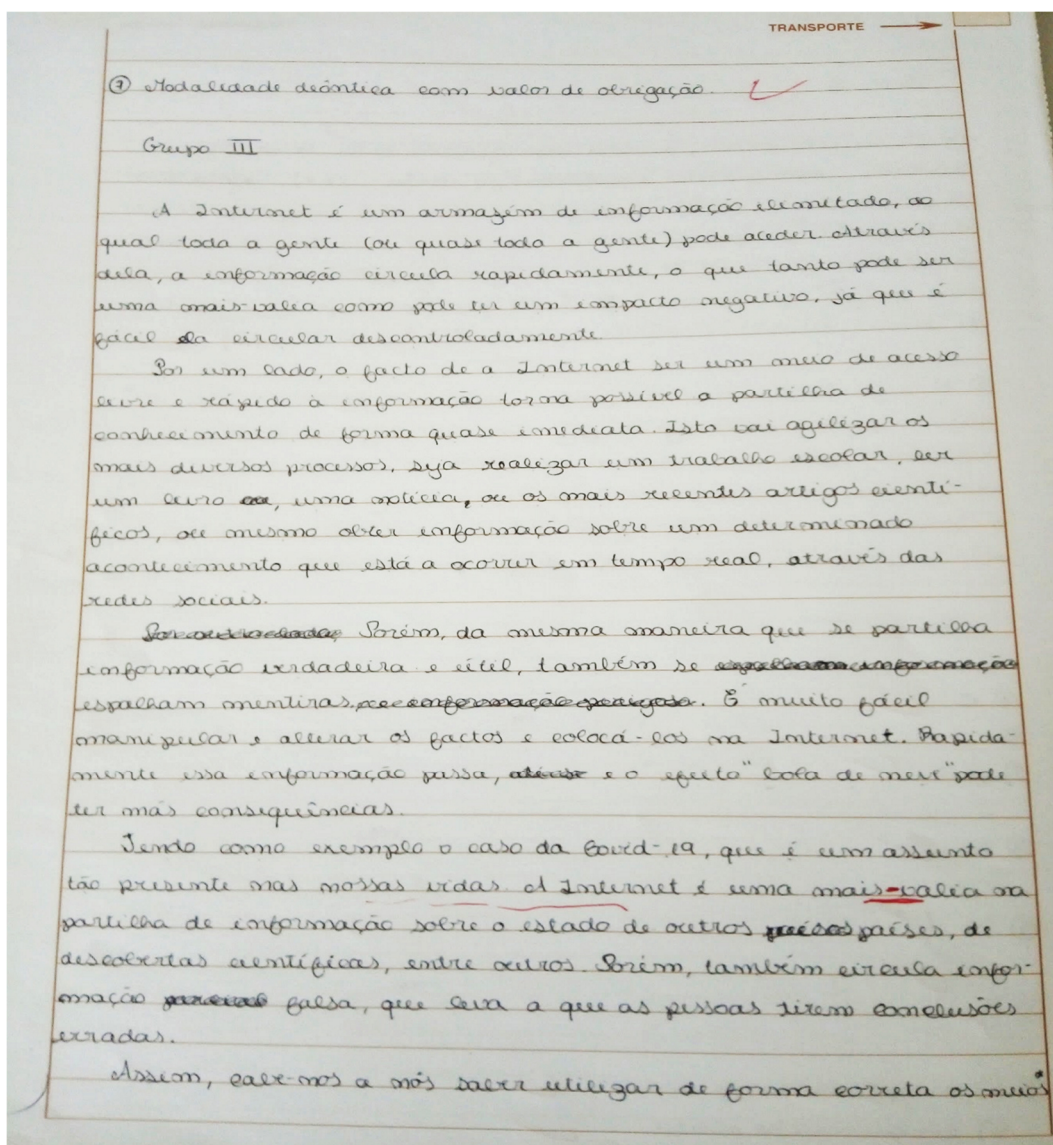 TRANSPORTE
⑦ Modalidade deôntica com valor de obrigação.
Grupo III
A Internet é um armazém de informação ilimitado, ao
qual toda a gente (ou quase toda a gente) pode aceder. Através
dela, a informação circula rapidamente, o que tanto pode ser
uma mais-valia como pode ter um impacto negativo, já que é
fácil ela circular descontroladamente.
Por um lado, o facto de a Internet ser um meio de acesso
livre e rápido à informação torna possível a partilha de
conhecimento de forma quase imediata. Isto vai agilizar os
mais diversos processos, seja realizar um trabalho escolar, ler
um livro ou, uma notícia, ou os mais recentes artigos cientí-
ficos, ou mesmo obter informação sobre um determinado
acontecimento que está a ocorrer em tempo real, através das
redes sociais.
Por outro lado, Porém, da mesma maneira que se partilha
informação verdadeira e útil, também se espalham informação
espalham mentiras, ou informação perigosa. É muito fácil
manipular e alterar os factos e colocá-los na Internet. Rapida-
mente essa informação passa, e o efeito "bola de neve" pode
ter más consequências.
Tendo como exemplo o caso da Covid-19, que é um assunto
tão presente nas nossas vidas. A Internet é uma mais-valia na
partilha de informação sobre o estado de outros países, de
descobertas científicas, entre outros. Porém, também circula infor-
mação falsa, que leva a que as pessoas tirem conclusões
erradas.
Assim, cabe-nos a nós saber utilizar de forma correta os meios